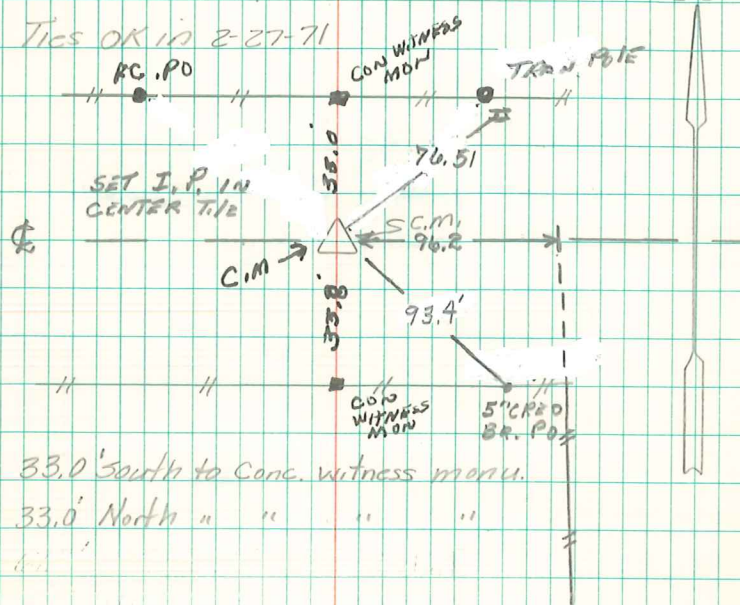 Ties OK in 2-27-71
CON WITNESS
MON
TRAN. POLE
PO
76.51
33.0'
SET I.P. IN
CENTER TILE
C.M.
℄
96.2
C.M
33.8'
93.4'
CON
WITNESS
MON
5" CREO
BR. PO.
33.0' South to Conc. witness monu.
33.0' North " " " "